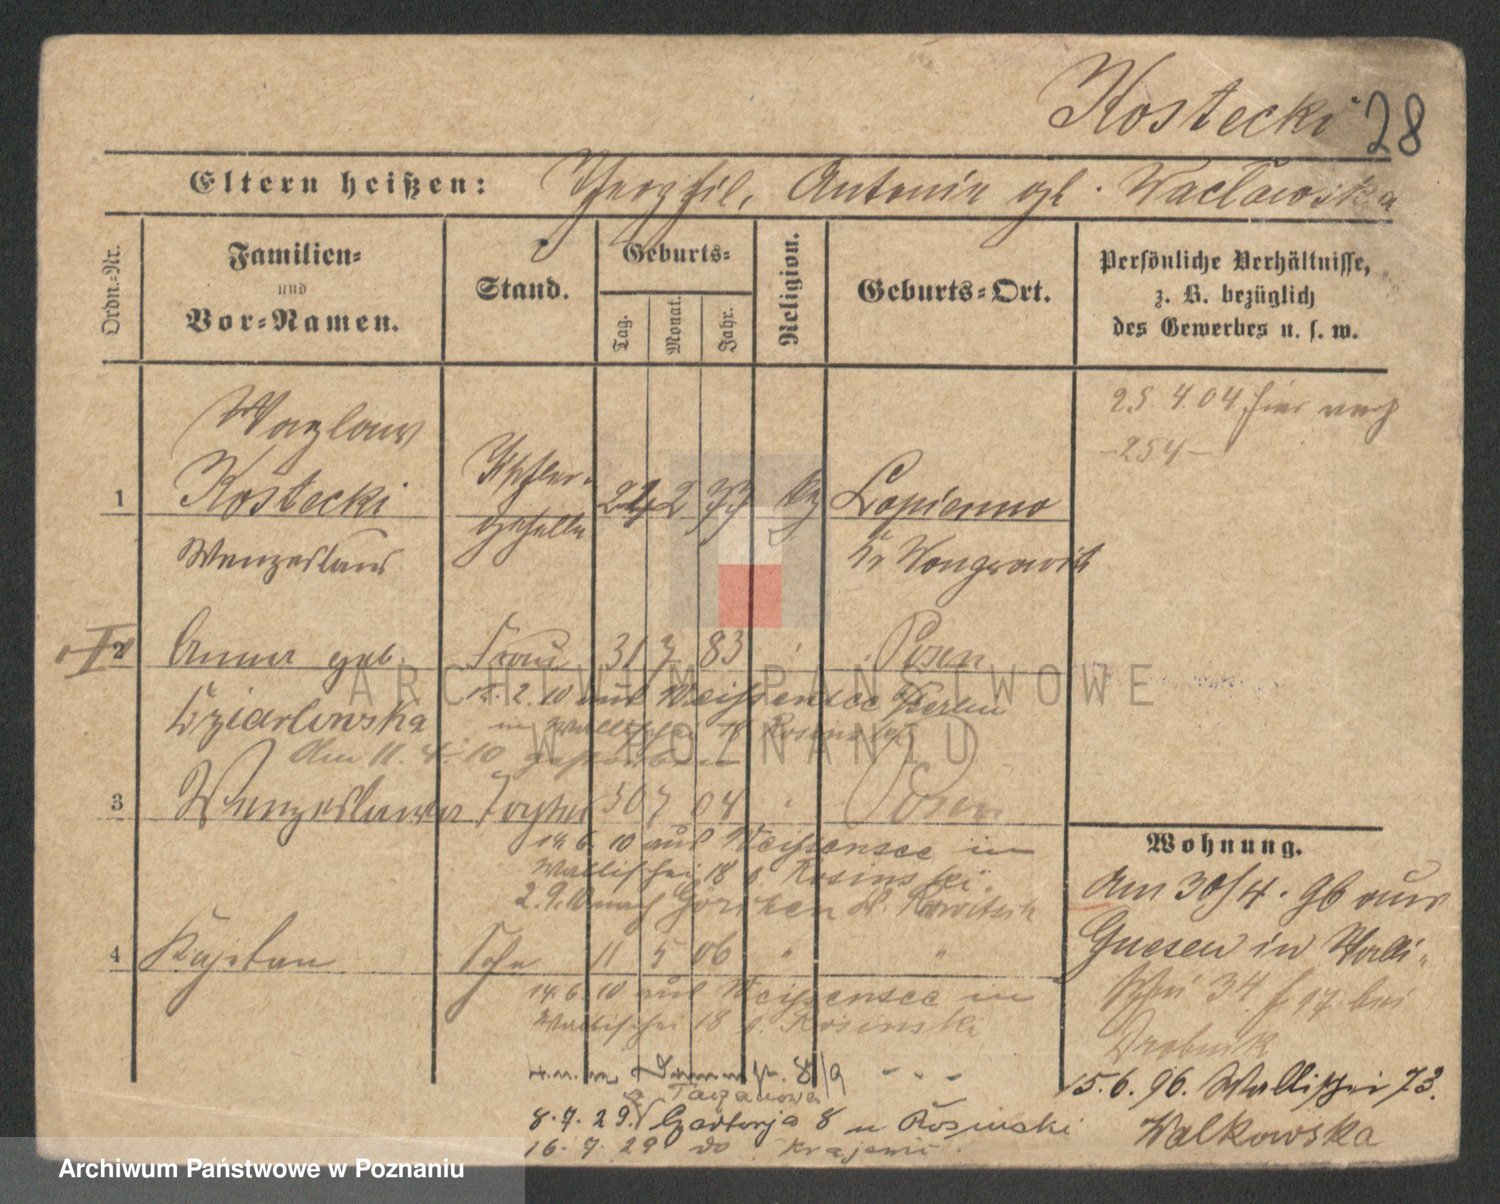 Kostecki 28
Eltern heißen: Theophil, Antonie geb. Wacławska
Ordn.-Nr.
Familien-
und
Vor-Namen.
Stand.
Geburts-
Tag.
Monat.
Jahr.
Religion.
Geburts-Ort.
Persönliche Verhältnisse,
z. B. bezüglich
des Gewerbes u. s. w.
25. 4. 04 hier
- 254 -
Wazlaw
1 Kostecki 2 77 Lopienno
geselle
Wenzeslaus Kr Wongrowitz
2 Anna geb. Frau 31 7 83 Posen
Dziarlowska
12. 2. 10 aus Weißensee Berlin
in Wallischei 18 Rosinski
Am 11. 4. 10 gestorben
3 Wenzeslawa Tochter 30 7 04 " Posen
14. 6. 10 aus Weissensee in
Wallischei 18 b. Rosinski.
2. 9. 10 nach Görchen Kr. Rawitsch
4 Kajetan Sohn 11 5 06 " "
14. 6. 10 aus Weissensee in
Wallischei 18 b. Rosinski
8/9 - - -
Taczanowa
8. 7. 29. Czartorja 8 u Rosinski
16. 7. 29 do Krajemi
Wohnung.
Am 30/4. 96 aus
Gnesen in Walli-
schei 34 f 17 bei
Drobnik
15. 6. 96. Wallischei 73.
Walkowska
ARCHIWUM PAŃSTWOWE
W POZNANIU
Archiwum Państwowe w Poznaniu